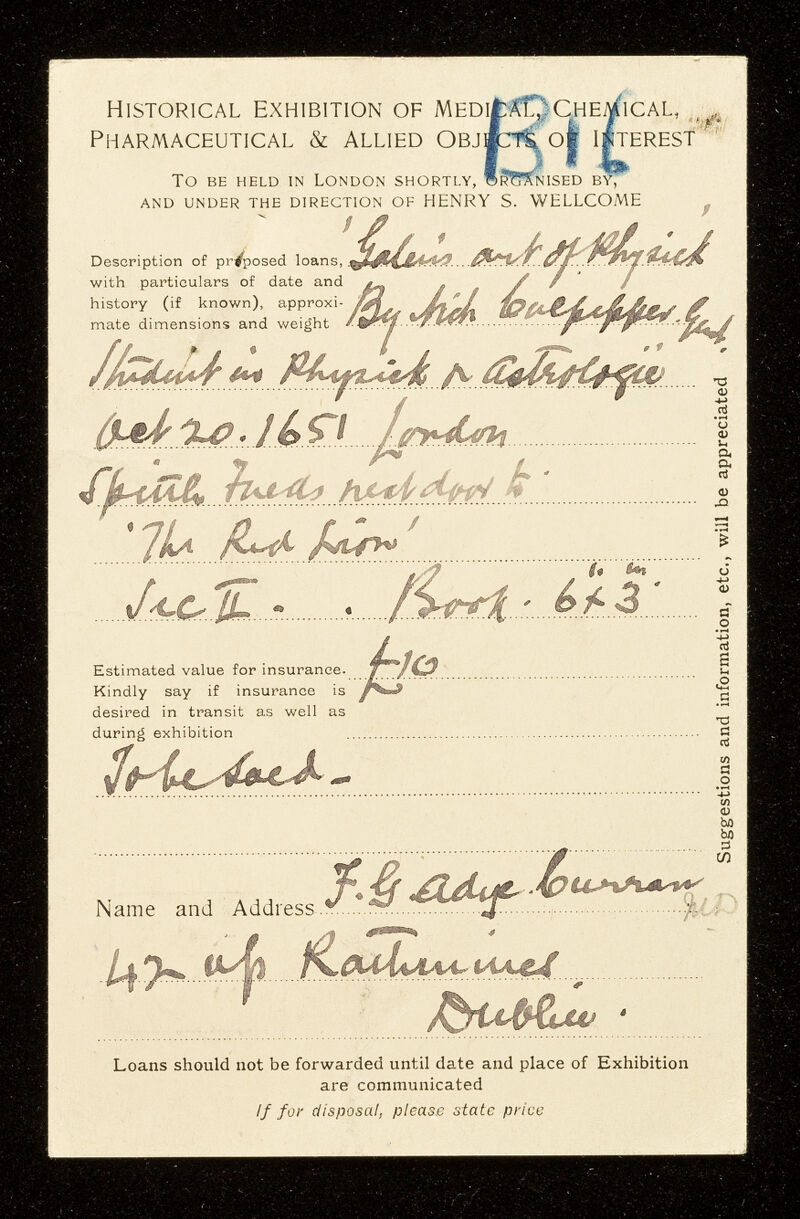 B16
HISTORICAL EXHIBITION OF MEDICAL, CHEMICAL,
PHARMACEUTICAL & ALLIED OBJECTS OF INTEREST
TO BE HELD IN LONDON SHORTLY, ORGANISED BY,
AND UNDER THE DIRECTION OF HENRY S. WELLCOME
Description of proposed loans, 'Galen's art of Physick'
with particulars of date and
history (if known), approxi- By Nich Culpepper. Gent
mate dimensions and weight
Student in Physick & Astrologie
Oct 20. 1651 London
Spittle Fields next door to
'The Red Lion'
Sec II . . Book. 6" x 3 in
Estimated value for insurance. £10
Kindly say if insurance is
desired in transit as well as
during exhibition
To be Soed -
Name and Address F. G Adye Curran
42 up Rathmines
Dublin .
Loans should not be forwarded until date and place of Exhibition
are communicated
If for disposal, please state price
Suggestions and information, etc., will be appreciated